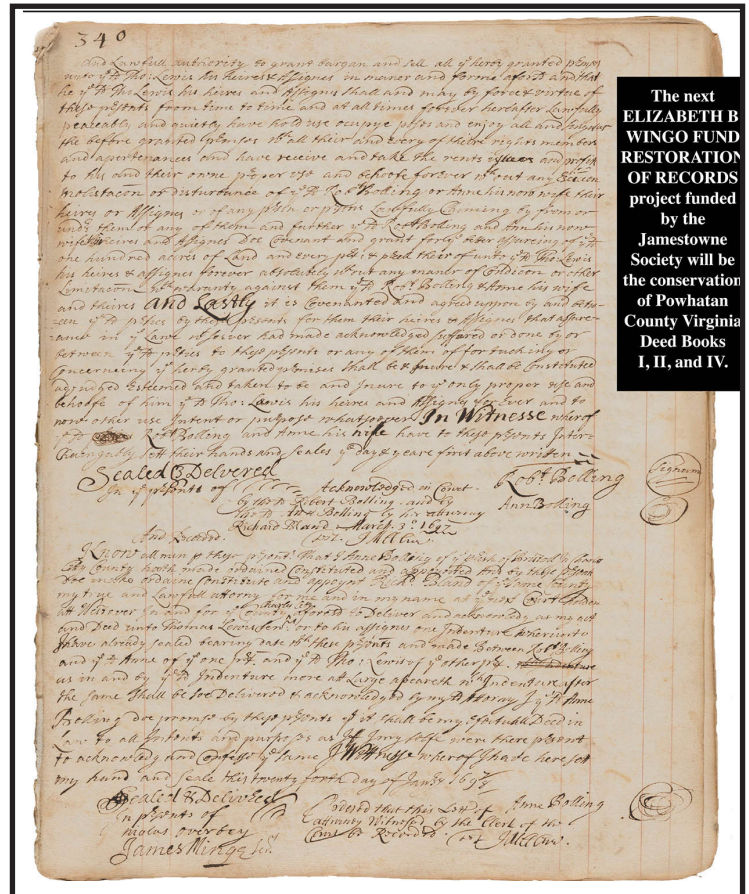 340
And Lawfull authority to grant bargan and sell all ye herog granted
unto ye sd Tho: Lewis his heires & Assignes in maner and forme aforsd and that
he ye sd Tho: Lewis his heires and Assignes shall and may by force & virtue of
these psents from time to time and at all times forever hereafter Lawfully
peaceably and quietly have hold use occupye poses and enjoy all and singular
the before granted pmises wth all their and every of theire rights members
and apertenances and have receive and take the rents issues and profits
to his and their owne proper use and behoofe forever wthout any
molestacon or disturbance of ye sd Robt Bolling or Anne his now wife their
heires or Assignes or of any pson or psons Lawfully Claiming by from or
undr them or any of them and further ye sd Robt Bolling and Ann his now
wife heires and Assignes Doe Covenant and grant for ye better assureing of ye sd
one hundred acres of Land and every pt & pcell therof unto ye sd Tho: Lewis
his heires & assignes forever absolutely wthout any manor of Condicon or other
Limitacon wth warranty against them ye sd Robt Bolling & Anne his wife
and theires And Lastly it is Covenanted and agreed upon by and betw-
een ye sd pties by these psents for them their heires & Assignes that assur-
ance in ye Lawe wtsoever had made acknowledged suffered or done by or
between ye sd pties to these psents or any of them of for tuching or
Concerneing ye herby granted premises shall be & inure & shall be Construed
adjudged Esteemed and taken to be and Inure to ye only proper use and
behoofe of him ye sd Tho: Lewis his heires and Assignes for Ever and to
none other use Intent or purpose whatsoever In Witnesse wherof
ye sd Robt Bolling and Anne his wife have to these psents Inter-
Chaingably sett their hands and seales ye day & yeare first above written
Sealed & Delivered
In ye psents of
Acknowledged in Court
by the sd Robert Bolling and by
the sd Ann Bolling by his attorney
Richard Bland March 3d 1697
Robt Bolling
Ann Bolling
Signum
And Recorded
Know all men p these psents That I Anne Bolling of ye
City County hath made ordained Constituted and appoynted and by these psents
Doe make ordaine Constitute and appoynt Richd Bland of ye same County
my true and Lawfull attorny for me and in my name at ye next Court holden
att Westover in and for ye County aforsd to Deliver and acknowledg as my act
Charles Citty
and Deed unto Thomas Lewis senr or to his assignes one Indenture wherunto
I have already sealed bearing date wth these psents and made Between Robt Bolling
and ye sd Anne of ye one pt and ye sd Tho: Lewis of ye other pt
us in and by ye sd Indenture more at Large apeareth wch Indenture after
the same shall be soe Delivered & acknowledged by my sd Attorny I ye sd Anne
Bolling doe promise by these psents yt it shall be my Deed in
Law to all Intents and purposes as if I my selfe were there present
to acknowledg and Confesse ye same In Wittnesse wherof I have here set
my hand and seale this twenty forth day of
Sealed & Delivered
In psents of
nicolas overbey
James Minge Senr
Ordered that this Lettr of
atturney Witnesed by the Clerk of the
Court be Recorded
Anne Bolling
The next
ELIZABETH B
WINGO FUND
RESTORATION
OF RECORDS
project funded
by the
Jamestowne
Society will be
the conservation
of Powhatan
County Virginia
Deed Books
I, II, and IV.